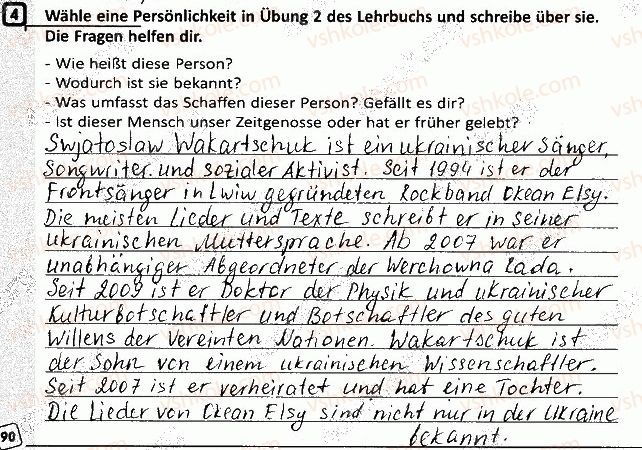 4 Wähle eine Persönlichkeit in Übung 2 des Lehrbuchs und schreibe über sie.
Die Fragen helfen dir.
- Wie heißt diese Person?
- Wodurch ist sie bekannt?
- Was umfasst das Schaffen dieser Person? Gefällt es dir?
- Ist dieser Mensch unser Zeitgenosse oder hat er früher gelebt?
Swjatoslaw Wakartschuk ist ein ukrainischer Sänger,
Songwriter und sozialer Aktivist. Seit 1994 ist er der
Frontsänger in Lwiw gegründeten Rockband Okean Elsy.
Die meisten Lieder und Texte schreibt er in seiner
ukrainischen Muttersprache. Ab 2007 war er
unabhängiger Abgeordneter der Werchowna Rada.
Seit 2009 ist er Doktor der Physik und ukrainischer
Kulturbotschaftler und Botschaftler des guten
Willens der Vereinten Nationen. Wakartschuk ist
der Sohn von einem ukrainischen Wissenschaftler.
Seit 2007 ist er verheiratet und hat eine Tochter.
Die Lieder von Okean Elsy sind nicht nur in der Ukraine
bekannt.
90